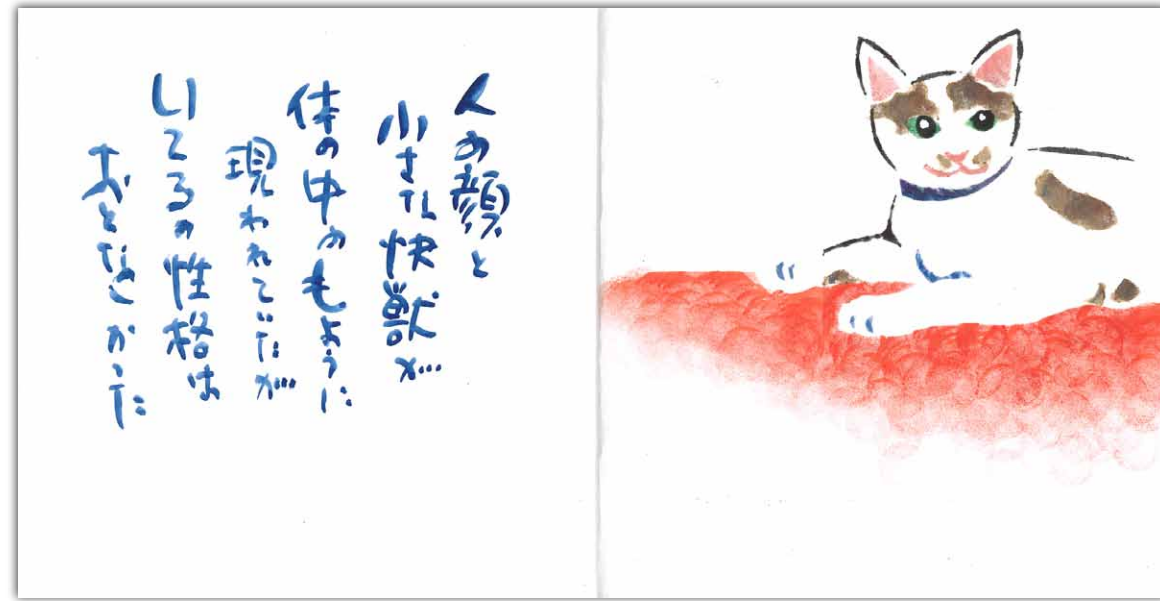 人の顔と
小さな快獣が…
体の中のもように
現われていたが…
いてるの性格は
おとなしかった